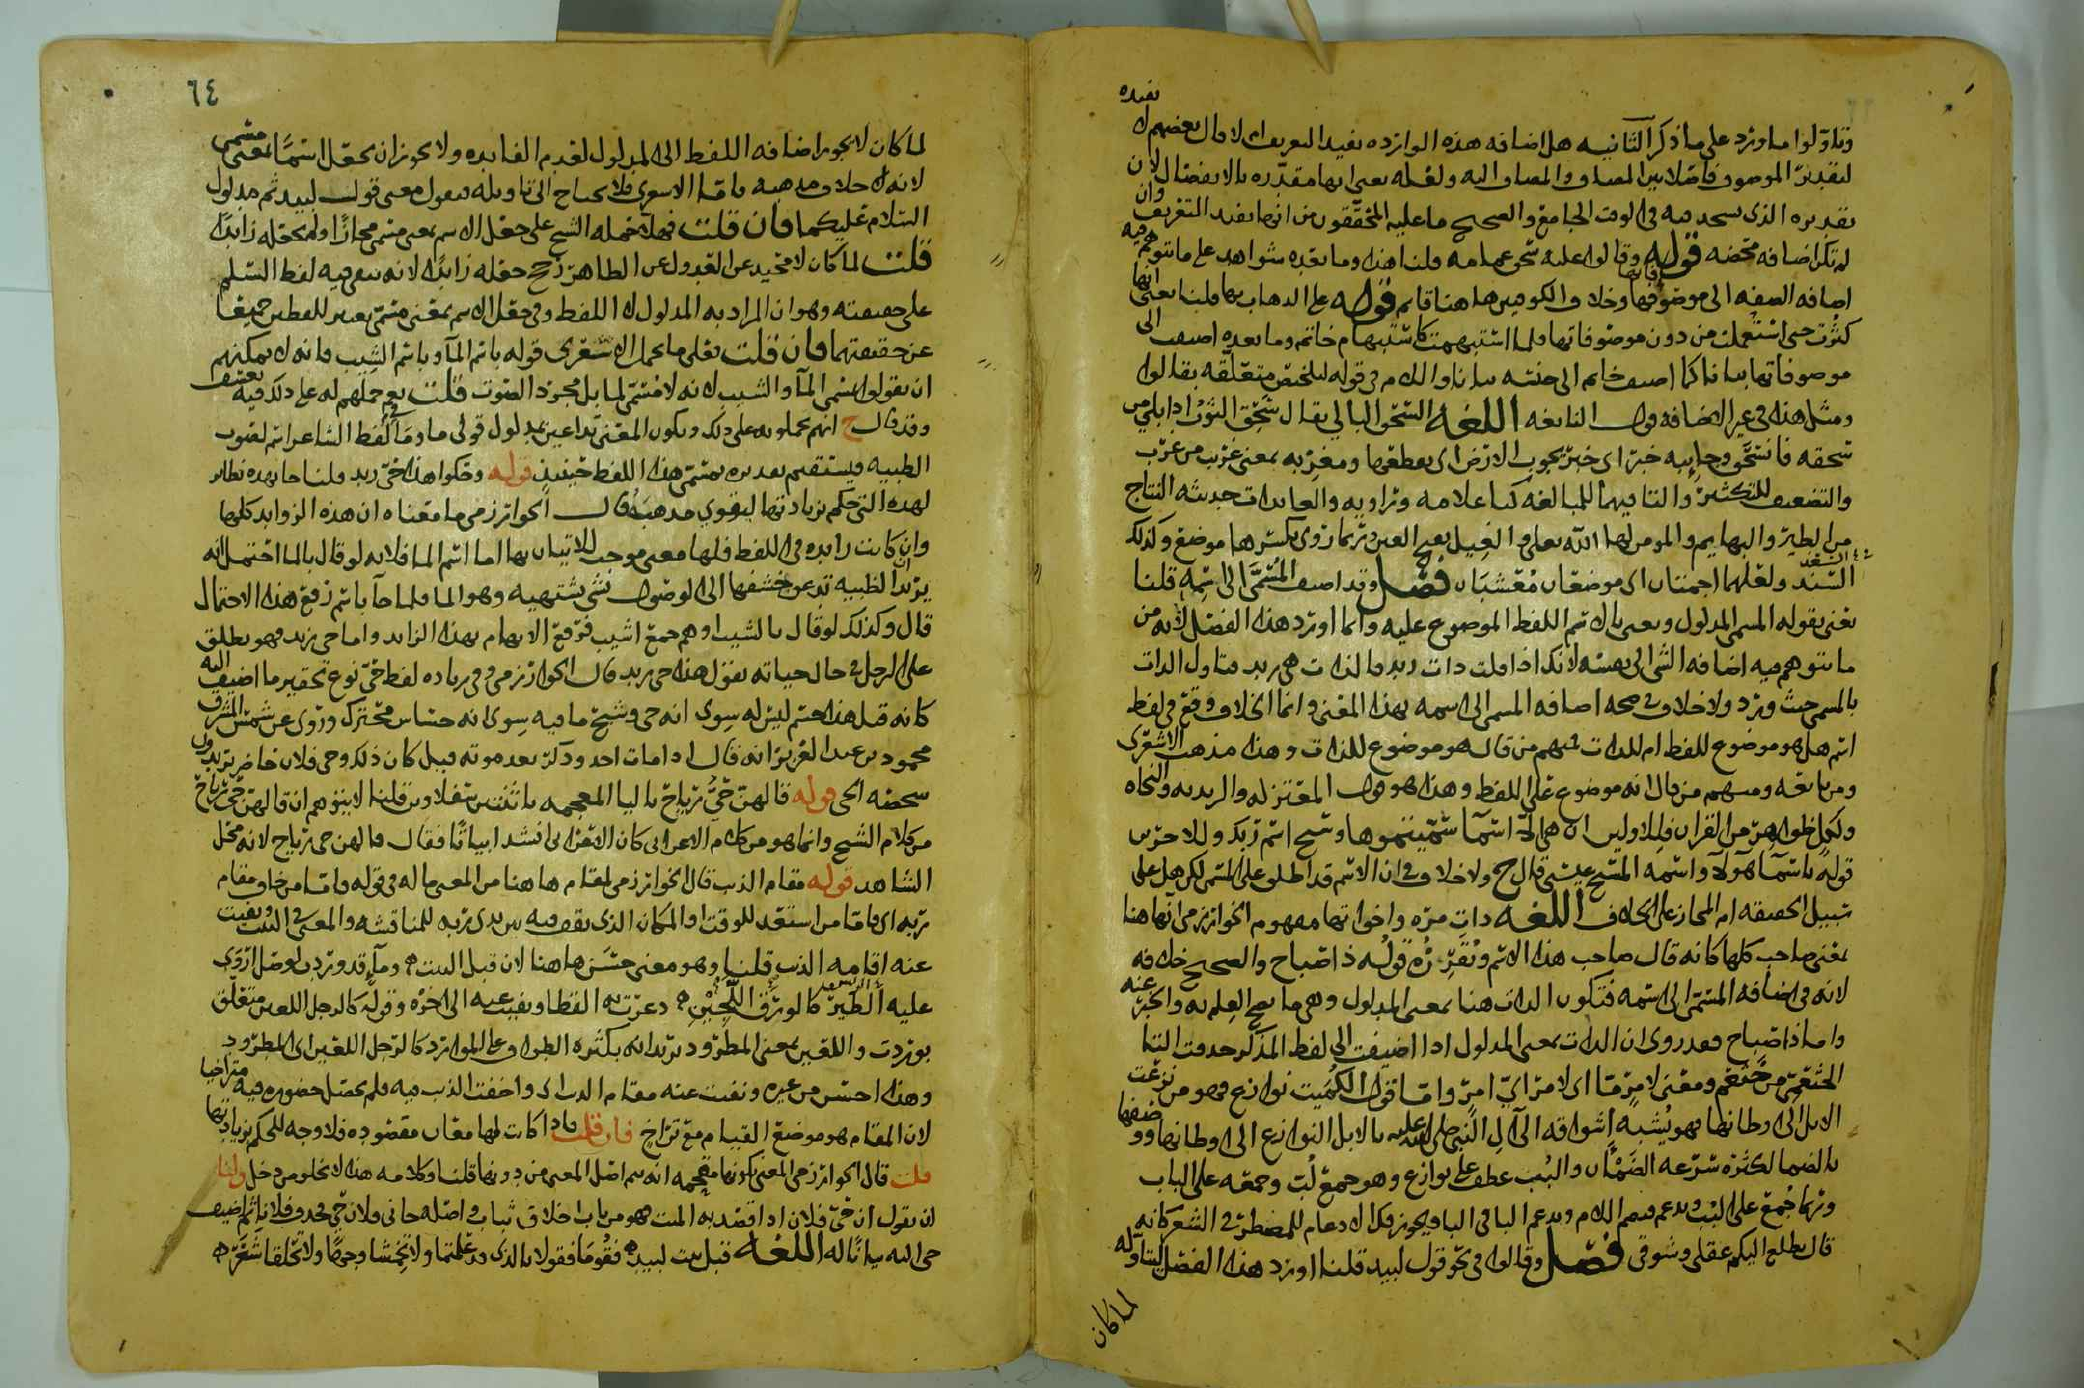 وتاولوا ما ورد على ما ذكر الثانيه هل اضافه هذه الوارده تفيد التعريف ام لا قال بعضهم لا تفيده
لتقدير الموصوف فاصلا بين المضاف والمضاف اليه ولعله يعني انها مقدره بالانفصال لان
تقديره الذي يسجد فيه في الوقت الجامع والصحيح ما عليه المحققون من انها تفيد التعريف وان
لم تكن اضافه محضه قوله وقالوا عليه سحق عمامه قلنا هذا وما بعده شواهد على ما يتوهم فيه
اضافه الصفه الى موصوفها وخلاف الكوفيين هاهنا قايم قوله على الذهاب بها قلنا يعني انها
كثرت حتى استعملت من دون موصوفاتها فلما استبهمت كاستبهام خاتم وما بعده اضيفت الى
موصوفاتها بيانا كما اضيف خاتم الى جنسه بيانا واللام في قوله لتلخيص متعلقه بقالوا
ومثل هذا في غير الاضافه قول النابغه اللغه السحق البالي يقال سحق الثوب اذا بلي من
سحقه فانسحق وجايبه خبر اي خبر يجوب الارض اي يقطعها ومغربه بمعنى غرب من غرب
والتضعيف للتكثير والتا فيهما للمبالغه كتا علامه وراويه والعايذات حديثه النتاج
من الطير والبهايم والمومن لها الله تعالى والغيل بفتح العين وربما روي بكسرها موضع وكذلك
السند ولعلهما اجمتان اي موضعان معشبان فصل وقد اضيف المسمى الى اسمه قلنا
يعني بقوله المسمى المدلول ويعني بالاسم اللفظ الموضوع عليه وانما اورد هذا الفصل لانه من
ما يتوهم فيه اضافه الشي الى نفسه لانك اذا قلت ذات زيد فالذات هي زيد فتاول الذات
بالمسمى حيث ورد ولا خلاف في صحه اضافه المسمى الى اسمه بهذا المعنى وانما الخلاف وقع في لفظ
اسم هل هو موضوع للفظ ام للذات فمنهم من قال هو موضوع للذات وهذا مذهب الاشعري
ومن تابعه ومنهم من قال انه موضوع على اللفظ وهذا هو قول المعتزله والزيديه والنحاه
ولكل ظواهر من القران فللاولين ان هي الا اسما سميتموها وسبح اسم ربك وللاخرين
قوله باسما هولا واسمه المسيح عيسى قال ح ولا خلاف في ان الاسم قد اطلق على المسمى لكن هل على
سبيل الحقيقه ام المجاز على الخلاف اللغه ذات مره واخواتها مفهوم الخوارزمي انها هنا
بمعنى صاحب كلها كانه قال صاحب هذا الاسم وتقرره قوله ذا صباح والصحيح خلافه
لانه في اضافه المسمى الى اسمه فتكون الذات هنا بمعنى المدلول وهي ما يصح العلم به والخبر عنه
واما ذا صباح فقد روي ان الذات بمعنى المدلول اذا اضيفت الى لفظ المذكر حذفت التا
الخثعمي من خثعم ومعنى لامر ما اي لامر اي امر واما قول الكميت نوازع فهو من نزعت
الابل الى اوطانها فهو يشبه اشواقه الى آل النبي صلى الله عليه بالابل النوازع الى اوطانها
بالضما لكثره شرعه الضمان والبب عطف على نوازع وهو جمع لب وجمعه على الباب
وربما جمع على البب
قال تطلع اليكم عقلي وشوقي فصل وقالوا في نحو قول لبيد قلنا اورد هذا الفصل ليتاوله
لما كان
٦٤
لما كان لا يجوز اضافه اللفظ الى المدلول لعدم الفايده ولا يجوز ان يجعل اسما بمعنى مسمى
لانه خلاف مذهبه فاما الاشعري فلا يحتاج الى تاويله فيقول معنى قول لبيد ثم مدلول
السلام عليكما فان قلت فهلا حمله الشيخ على جعل الاسم بمعنى مسمى مجازا ولم يجعله زايدا
قلت لما كان لا محيد عن العدول عن الظاهر رجح جعله زايدا لانه يبقى فيه لفظ السلم
على حقيقته وهو ان المراد به المدلول لا اللفظ وفي جعل الاسم بمعنى مسمى تغيير للفظين جميعا
عن حقيقتهما فان قلت فعلى ما يحمل الاشعري قوله باسم الما وباسم الشيب فانه لا يمكنهم
ان يقولوا بمسمى الما والشيب لانه لا مسمى لما بل مجرد الصوت قلت نعم حملهم له على ذلك فيه تعسف
وقد قال ح انهم يحملونه على ذلك ويكون المعنى تداعين بمدلول قولي ما وما في لفظ الشاعر اسم لصوت
الظبيه فيستقيم تقديره بمسمى هذا اللفظ حينئذ قوله وحكوا هذا حي زيد قلنا جا بهذه نظاير
لهذه التي حكم بزيادتها ليقوي مذهبه قال الخوارزمي ما معناه ان هذه الزوايد كلها
وان كانت زايده في اللفظ فلها معنى موجب للاتيان بها اما اسم الما فلانه لو قال بالما احتمل انه
يريد ان الظبيه تدعو خشفها الى الوصول بشي يشتهيه وهو الما فلما جا باسم رفع هذا الاحتمال
قال وكذلك لو قال بالشيب او هم جمع اشيب فرفع الابهام بهذا الزايد واما حي زيد فهو يطلق
على الرجل في حال حياته تقول هذا حي زيد قال الخوارزمي وفي زياده لفظ حي نوع تحقير ما اضيف اليه
كانه قيل هذا جسم ليس له سوى انه حي وشبح ما فيه سوى انه حساس متحرك وروي عن شمس المشرق
محمود بن عبد العزيز انه قال اذا مات احد وذكر بعد موته قيل كان ذلك وحي فلان حاضر يريدون
شخصه الحي قوله قالهن حي رياح
من كلام الشيخ وانما هو من كلام الاعرابي كان الاعرابي انشد ابياتا فقال قالهن حي رياح لانه محل
الشاهد قوله مقام الذيب قال الخوارزمي لمقام هاهنا من المعنى ما له في قوله واما من خاف مقام
ربه اي فاما من استعد للوقت او المكان الذي يقف فيه بين يدي ربه للمناقشه والمعنى في البيت ونفيت
عنه اقامه الذيب قلنا وهو معنى حسن هاهنا لان قبل البيت وما قد وردت لوصل اروى
عليه الطير كالورق اللجين ذعرت به القطا ونفيت عنه الى اخره وقوله كالرجل اللعين متعلق
بوردت واللعين بمعنى المطرود يريد انه بكثره الطراد على الموارد كالرجل اللعين اي المطرود
وهذا احسن من غيره ونفيت عنه مقام الذيب اي واخفت الذيب فيه فلم يحصل حضوره فيه متراخيا
لان المقام هو موضع القيام مع تراخ فان قلت فاذا كانت لها معان مقصوده فلا وجه للحكم بزيادتها
قلت قال الخوارزمي المعنى بكونها مقحمه انه يتم اصل المعنى من دونها قلنا وكلامه هذا لا يخلو من دخل ولنا
ان نقول ان حي فلان اذا قصد به الميت فهو من باب اخلاق ثياب واصله جاني فلان حي فحذف فلان ثم اضيف
حي اليه بيانا له اللغه قبل بيت لبيد فقوما فقولا بالذي قد علمتما ولا تخمشا وجها ولا تحلقا شعر